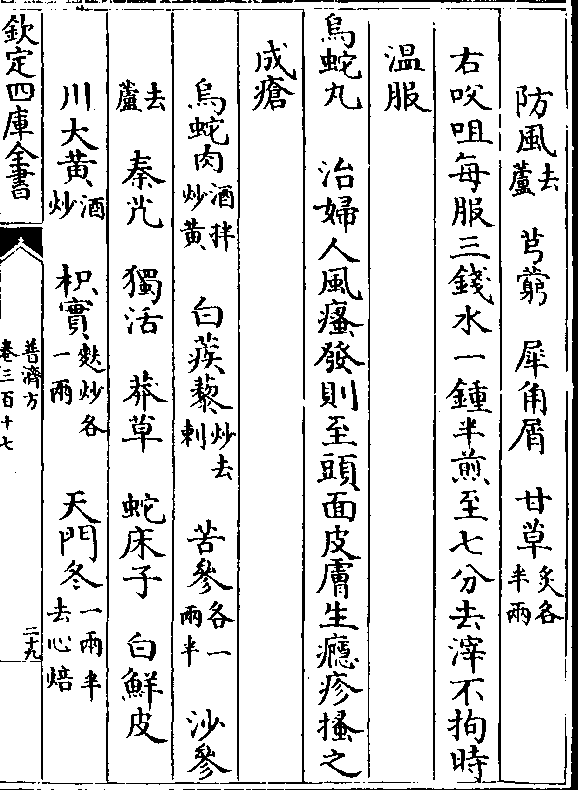 防風去蘆 芎藭 犀角屑 甘草炙各半兩
右㕮咀每服三錢水一鍾半煎至七分去滓不拘時
温服
烏蛇丸 治婦人風瘙發則至頭面皮膚生癮疹搔之
成瘡
烏蛇肉酒拌炒黄 白蒺藜炒去刺 苦參各一兩半 沙參
去蘆 秦艽 獨活 莽草 蛇床子 白鮮皮
川大黄酒炒 枳實麩炒各一兩 天門冬一兩半去心焙
欽定四庫全書
普濟方
卷三百十七
二十九